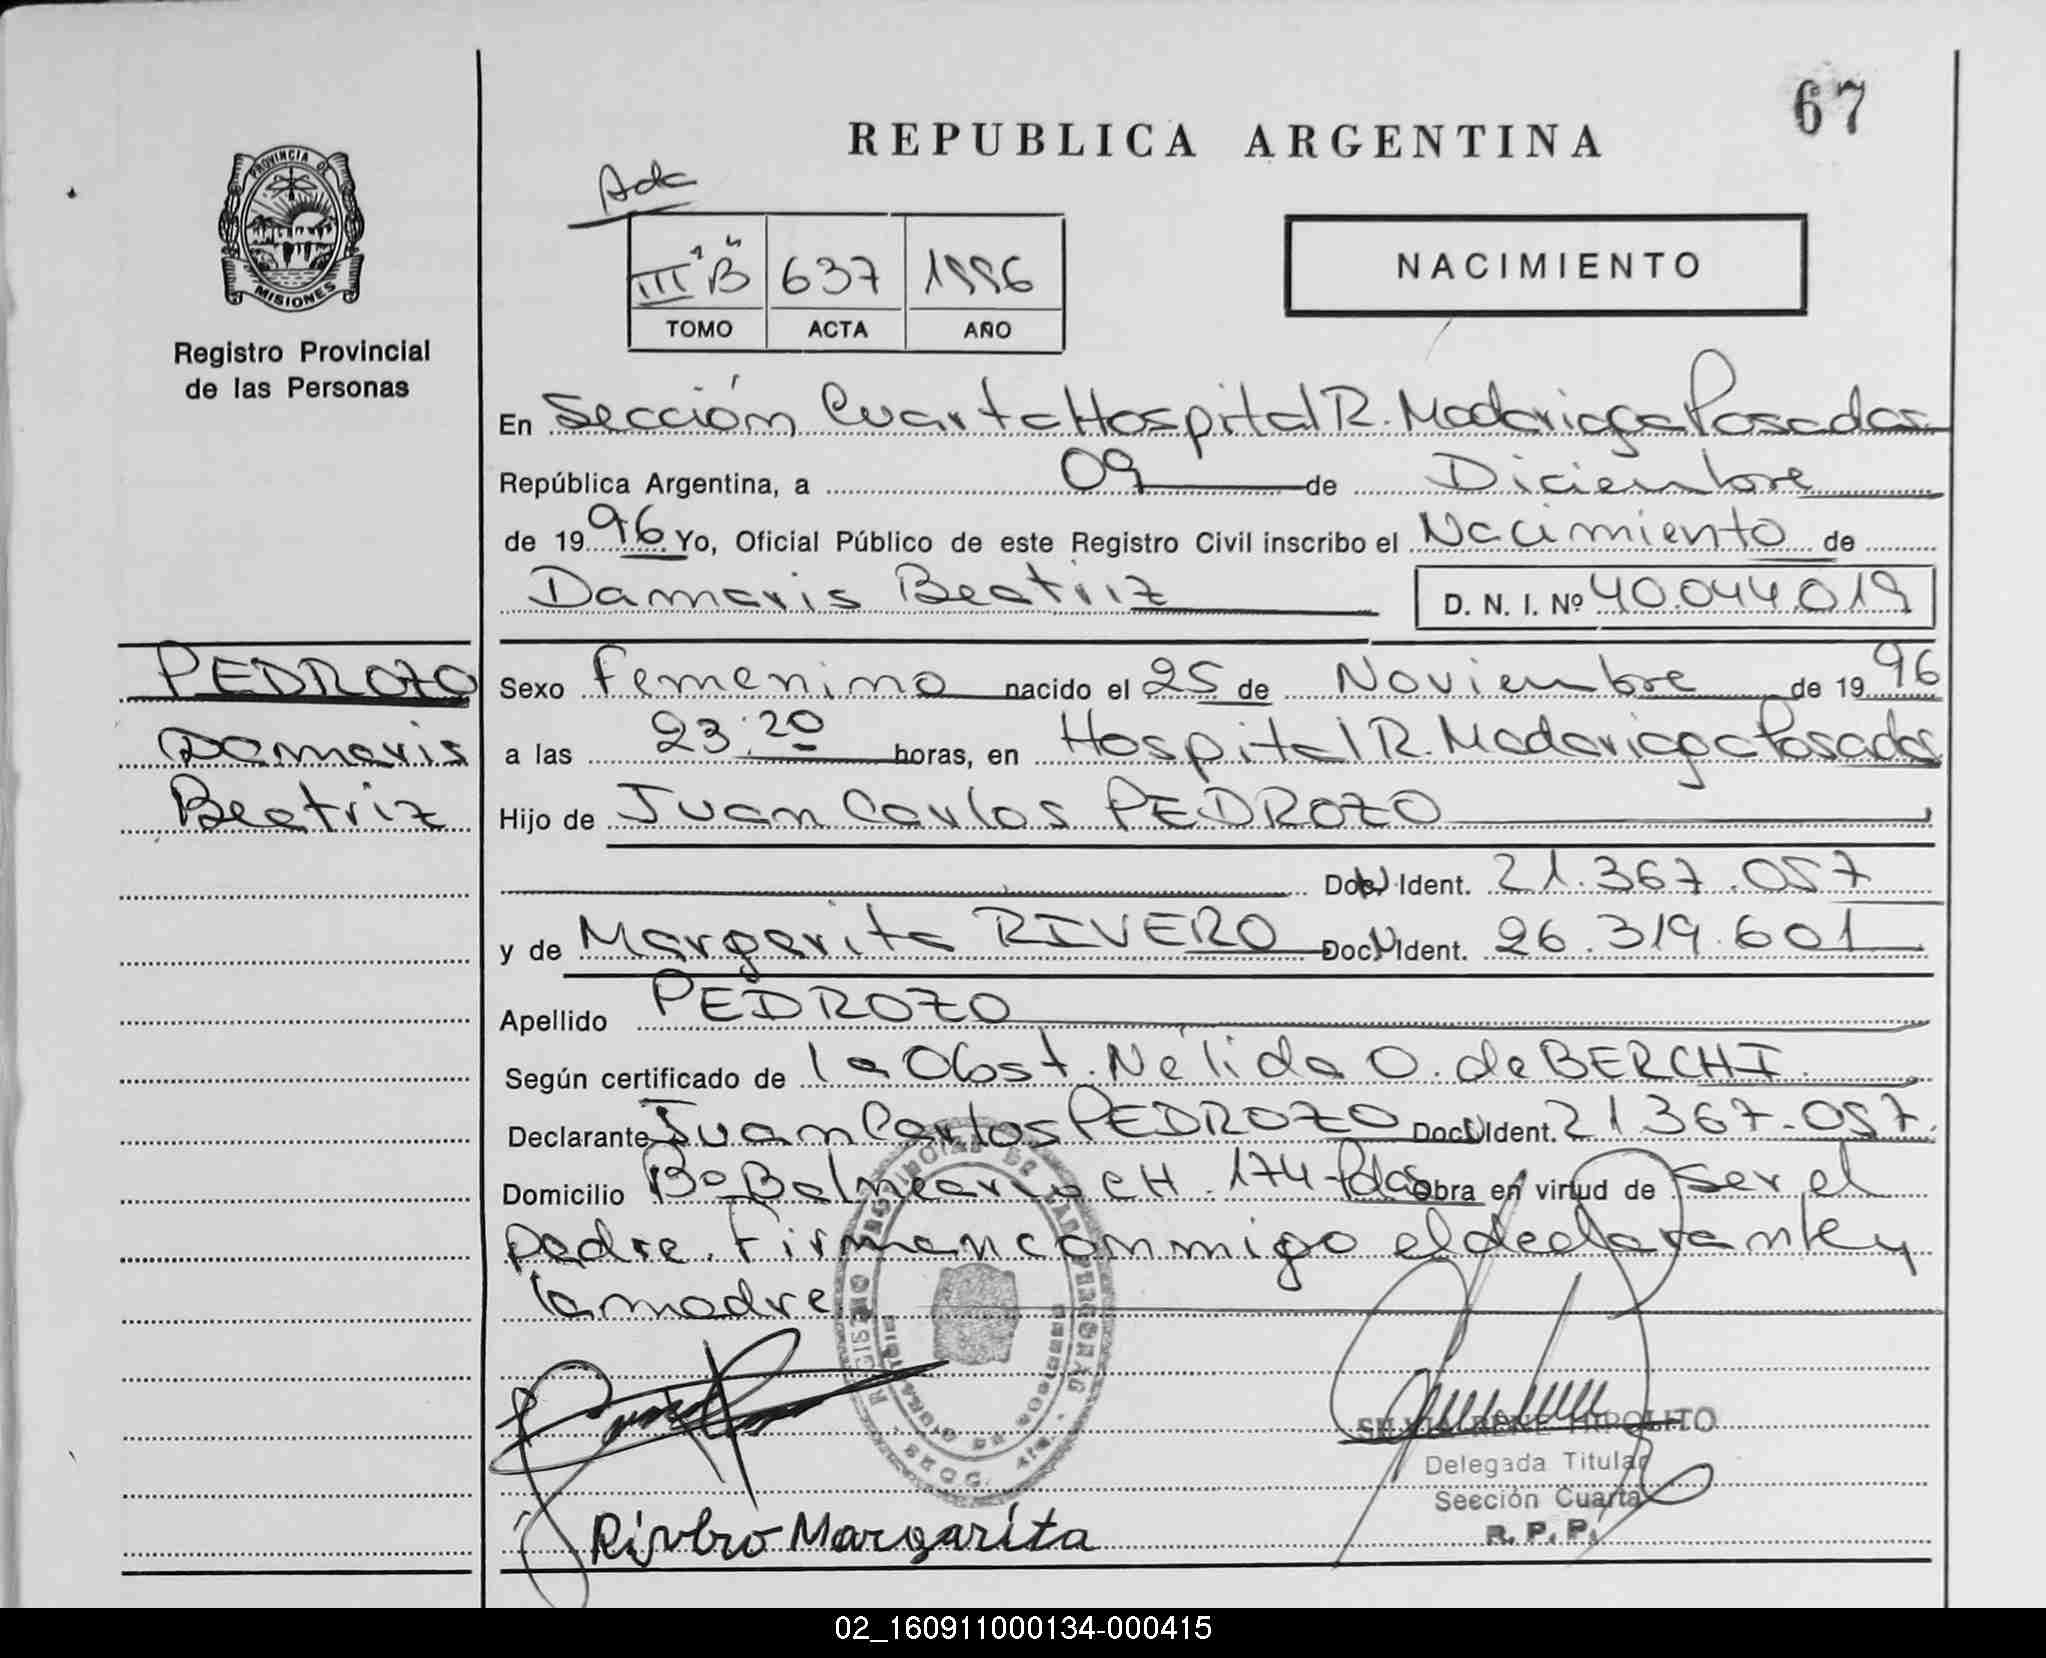 67
REPUBLICA ARGENTINA
PROVINCIA DE
MISIONES
Registro Provincial
de las Personas
III "B" 637 1996
TOMO ACTA AÑO
NACIMIENTO
En Sección Cuarta Hospital R. Madariaga Posadas
República Argentina, a 09 de Diciembre
de 1996 Yo, Oficial Público de este Registro Civil inscribo el Nacimiento de
Damaris Beatriz D. N. I. Nº 40.044.019
PEDROZO
Damaris
Beatriz
Sexo Femenino nacido el 25 de Noviembre de 1996
a las 23:20 horas, en Hospital R. Madariaga Posadas
Hijo de Juan Carlos PEDROZO
Ident. 21.367.057
y de Margarita RIVERO Doc. Ident. 26.319.601
Apellido PEDROZO
Según certificado de la Obst. Nélida O. de BERCHI.
Declarante Juan Carlos PEDROZO Doc. Ident. 21.367.057.
Domicilio Bº Balneario CH. 174 - Pdas Obra en virtud de ser el
padre. Firman conmigo el declarante y
la madre
Rivero Margarita
SILVIA RENE HIPOLITO
Delegada Titular
Sección Cuarta
R. P. P.
02_160911000134-000415